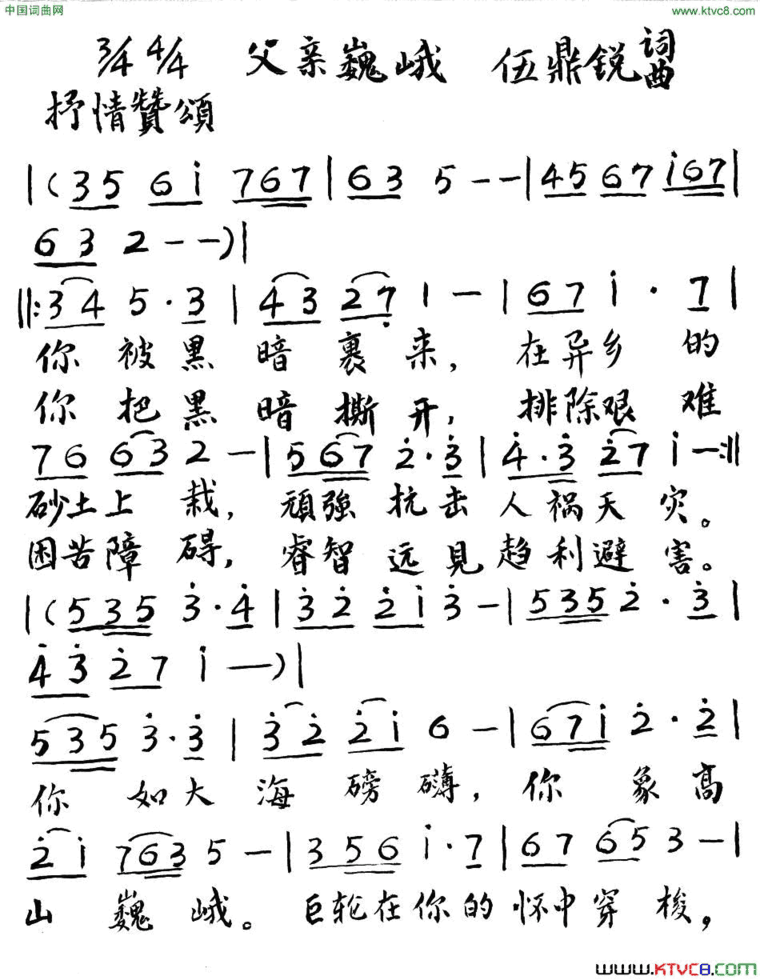 中国词曲网 www.ktvc8.com
3/4 4/4 父亲巍峨 伍鼎锐 词曲
抒情赞颂
|(35 6i 767|63 5--|4567 i67|
63 2--)|
‖:34 5·3|43 27̣ 1-|67 i·7|
你被黑暗裹来，在异乡的
你把黑暗撕开，排除艰难
76 63 2-|567 2̇·3̇|4̇·3̇ 2̇7 i-:‖
砂土上栽，顽強抗击人祸天灾。
困苦障碍，睿智远見趋利避害。
|(535 3̇·4̇|3̇2̇ 2̇i 3̇-|535 2̇·3̇|
4̇3̇ 2̇7 i-)|
535 3̇·3̇|3̇2̇ 2̇i 6-|67i 2̇·2̇|
你如大海磅礴，你象高
2̇i 7635-|356 i·7|67 653-|
山巍峨。巨轮在你的怀中穿梭，
www.KTVC8.com